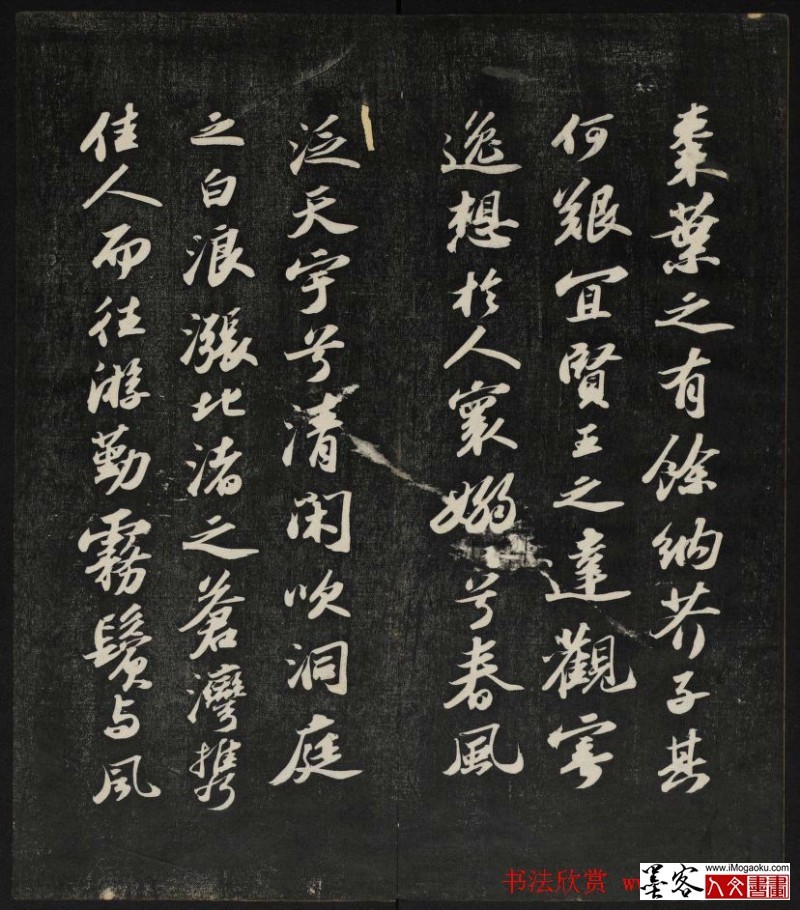 棗葉之有餘納芥子其
何艱宜賢王之達觀寄
逸想於人寰嫋兮春風
泛天宇兮清閑吹洞庭
之白浪漲北渚之蒼灣攜
佳人而往游勤霧鬢与風
书法欣赏
www.iMogaoku.com
墨客